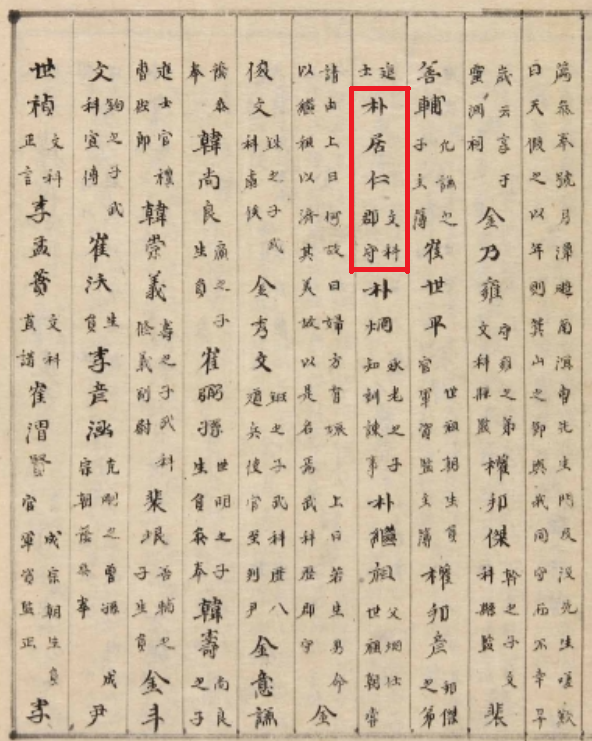 氣奉號月潭避南溟曹先生門及沒先生嘆歎曰天假之以年則箕山之節與我同守而不幸早
歲云享于靈淵祠金乃雍守雍之弟文科縣監權邦傑幹之子文科縣監裴
善輔允諴之子主簿崔世平世祖朝生員官軍資監主簿權邦彦邦傑之弟
進士朴居仁文科郡守朴烱永老之子知訓諫事朴繼祖父烱仕世祖朝嘗
請由上曰何故曰婦方有娠上曰若生男命以繼祖以濟其美故以是名焉武科歷郡守金
俊文銖之子武科虞侯金秀文之子武科歷八道兵使官至判尹金意諴
參奉韓尚良廣之子生員崔弼孫世明之子生員參奉韓壽尚良之子
進士官禮曹佐郎韓崇義壽之子武科修義副尉裴垠善輔之子生員金斗
文鉤之子武科宣傳崔汏生員李彦涵克剛之曾孫成宗朝登尹
世禎文科正言李孟賁文科直講崔渭賢成宗朝生員官軍資監正李